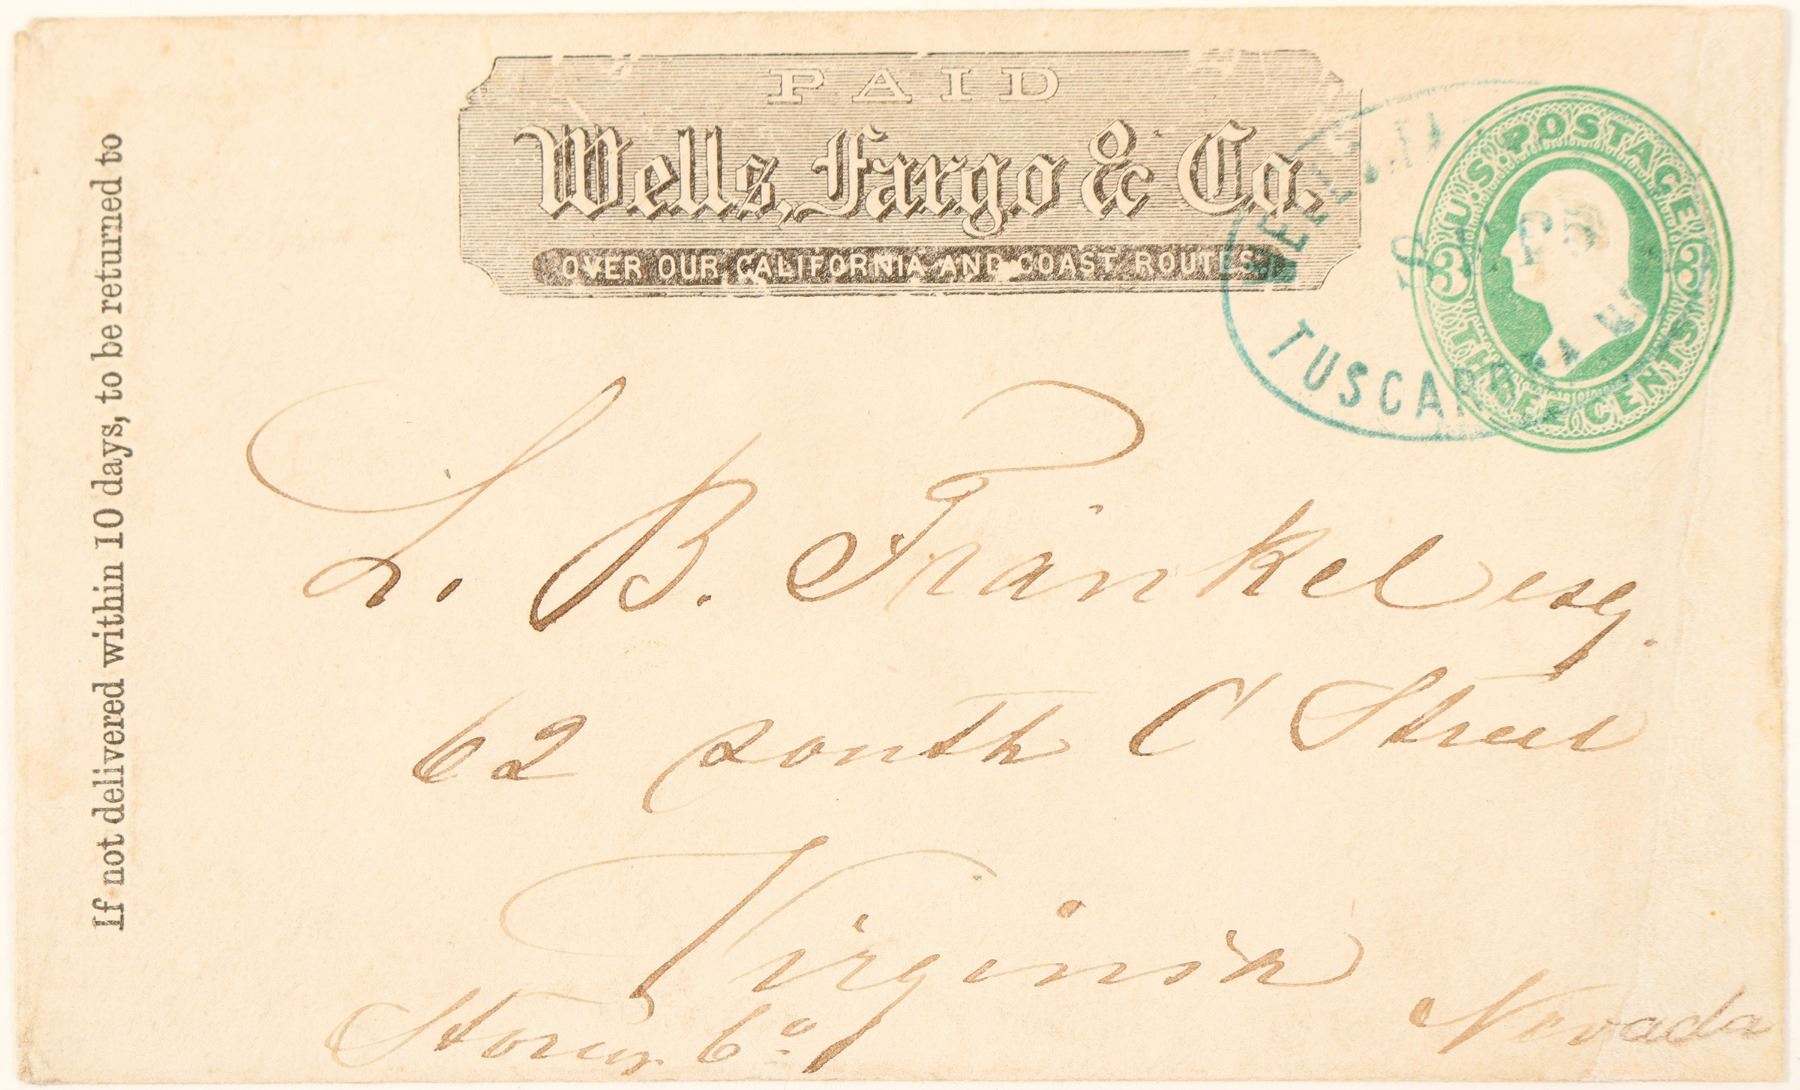 PAID
Wells, Fargo & Co.
OVER OUR CALIFORNIA AND COAST ROUTES
U.S. POSTAGE
3 3
THREE CENTS
TUSCARORA
If not delivered within 10 days, to be returned to
L. B. Fränkel esq.
62 South C Street
Virginia
Storey Co.
Nevada